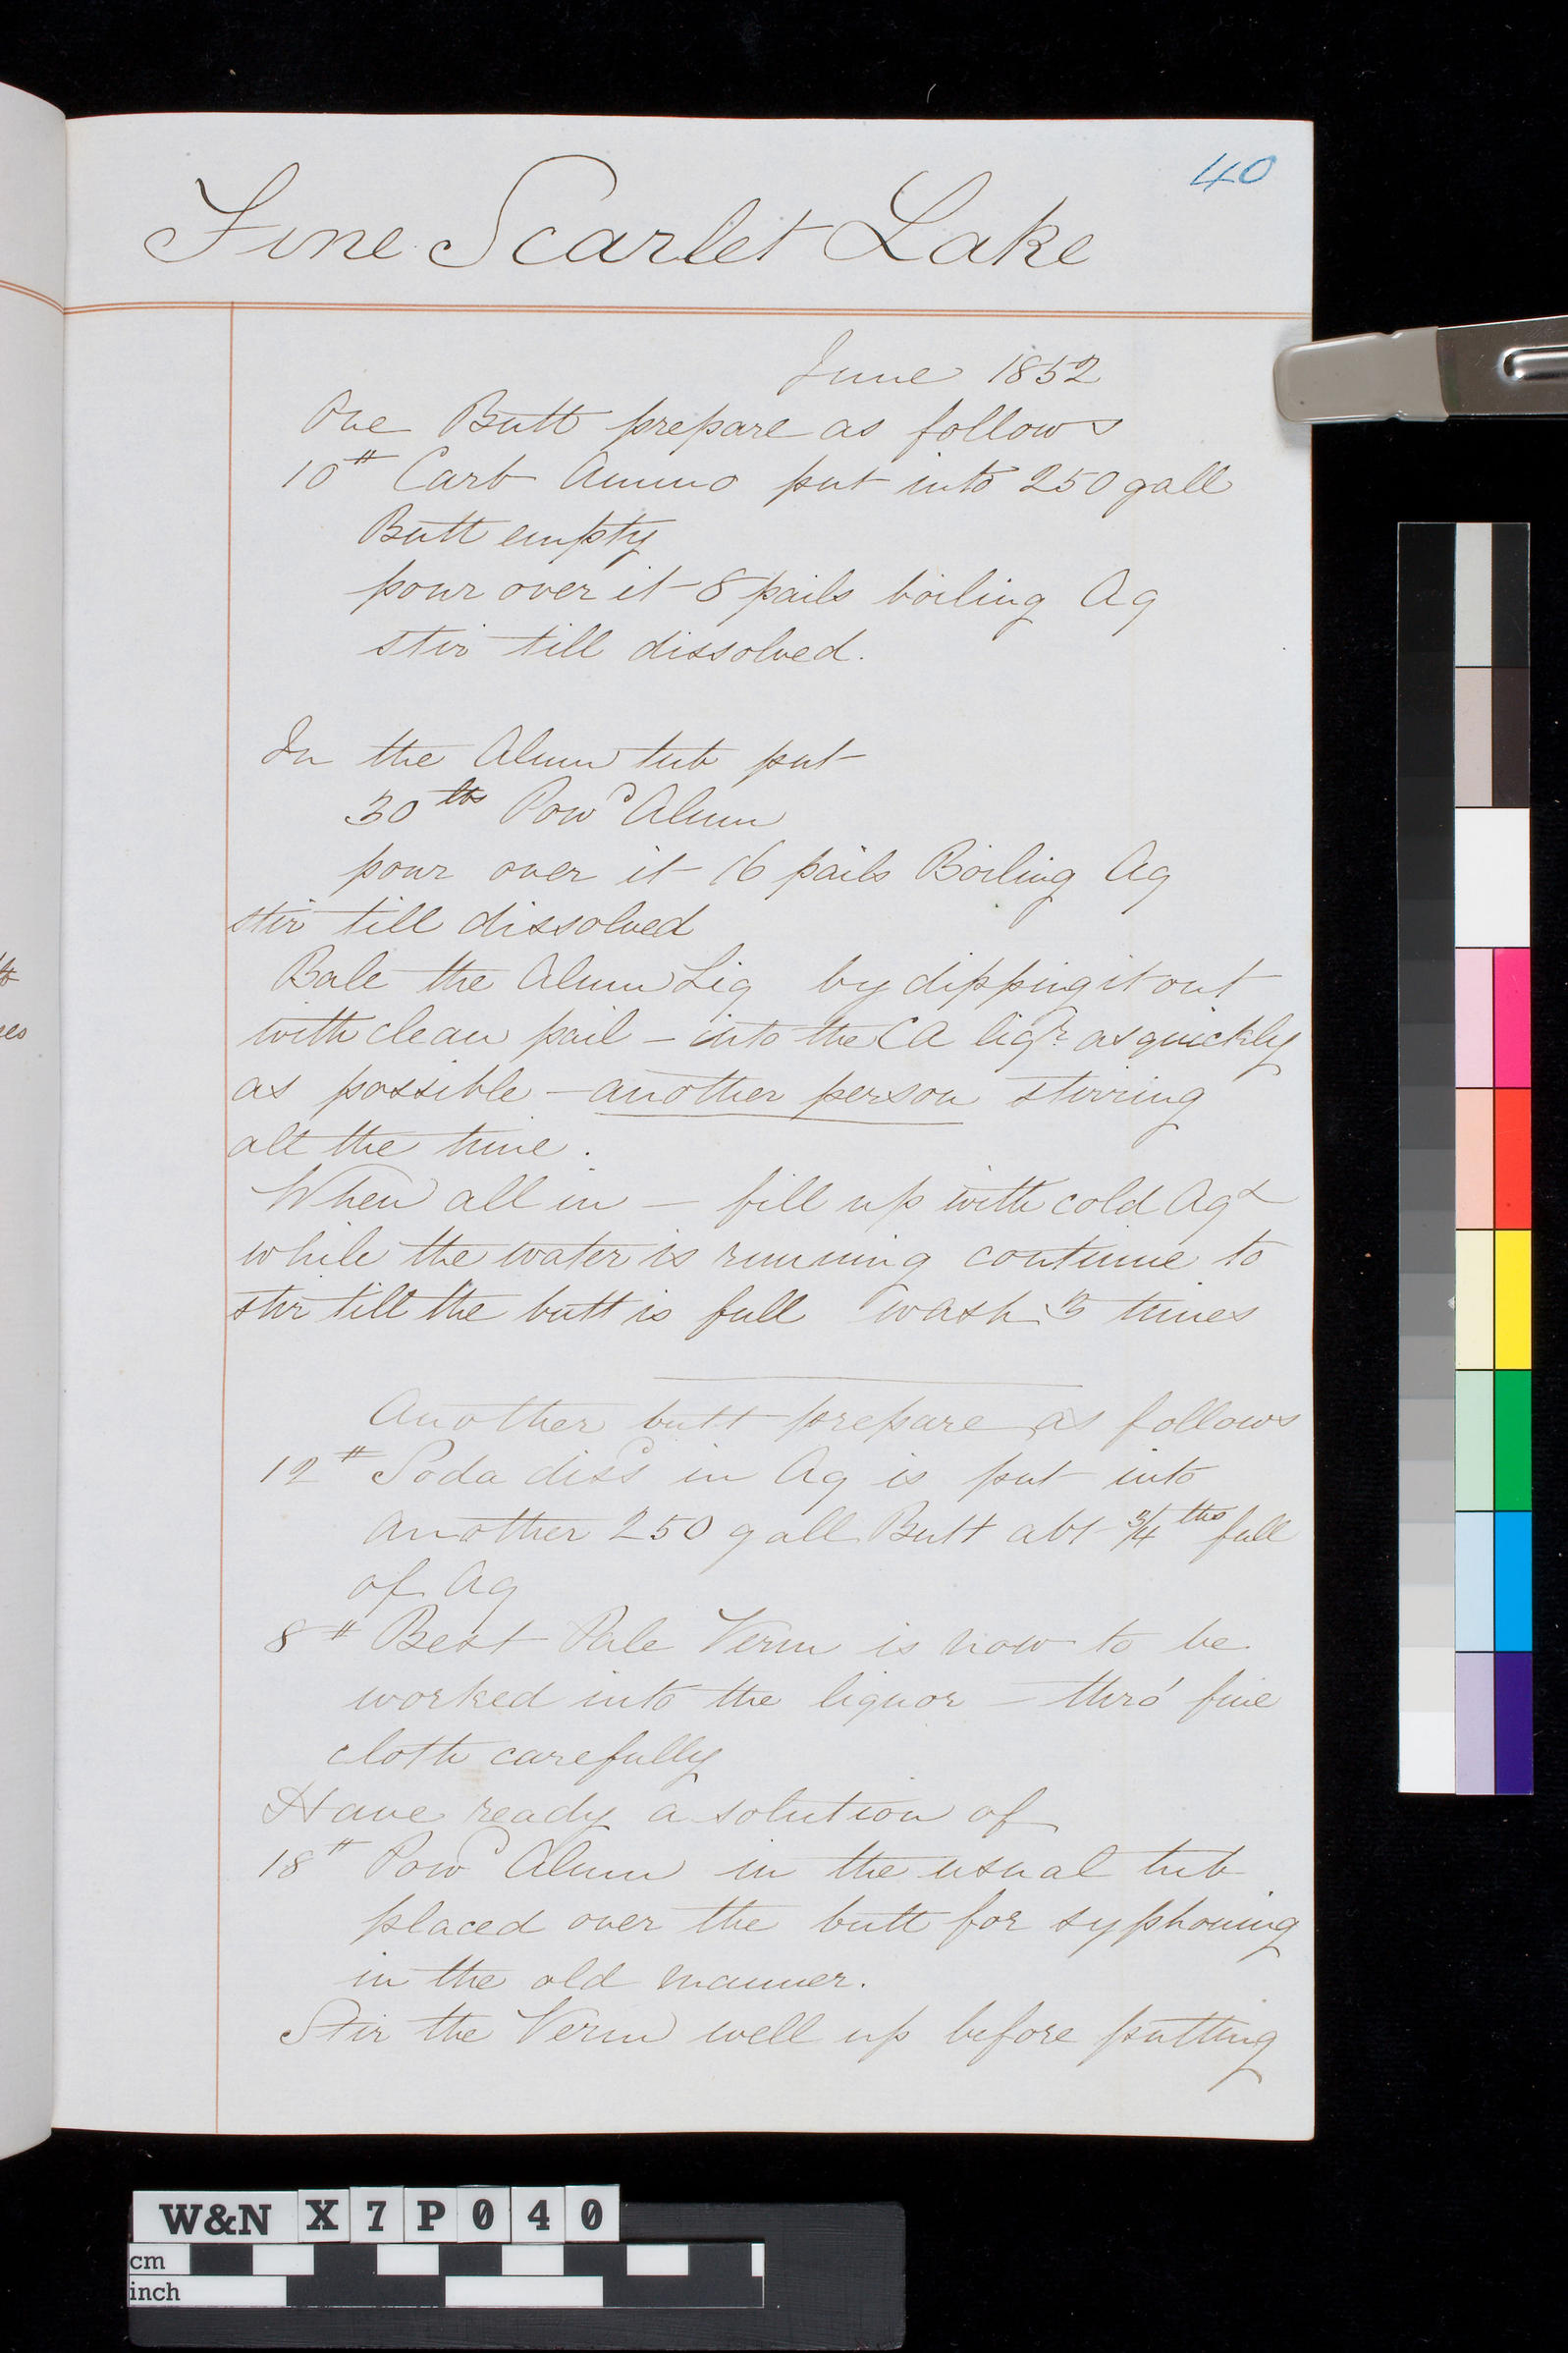 40
Fine Scarlet Lake
June 1852
One Butt prepare as follows
10# Carb Ammo put into 250 gall
Butt empty
pour over it 8 pails boiling Aq
stir till dissolved.
In the Alum tub put
30 lbs Powd Alum
pour over it 16 pails Boiling Aq
stir till dissolved
Bale the Alum Liq by dipping it out
with clean pail – into the CA liqr as quickly
as possible – another person stirring
all the time.
When all in – fill up with cold Aq &
while the water is running continue to
stir till the butt is full wash 3 times
Another butt prepare as follows
12# Soda dissd in Aq is put into
another 250 gall Butt abt 3/4 ths full
of Aq
8# Best Pale Verm is now to be
worked into the liquor – thro' fine
cloth carefully
Have ready a solution of
18# Powd Alum in the usual tub
placed over the butt for syphoning
in the old manner.
Stir the Verm well up before putting
W&N X7P040
cm
inch